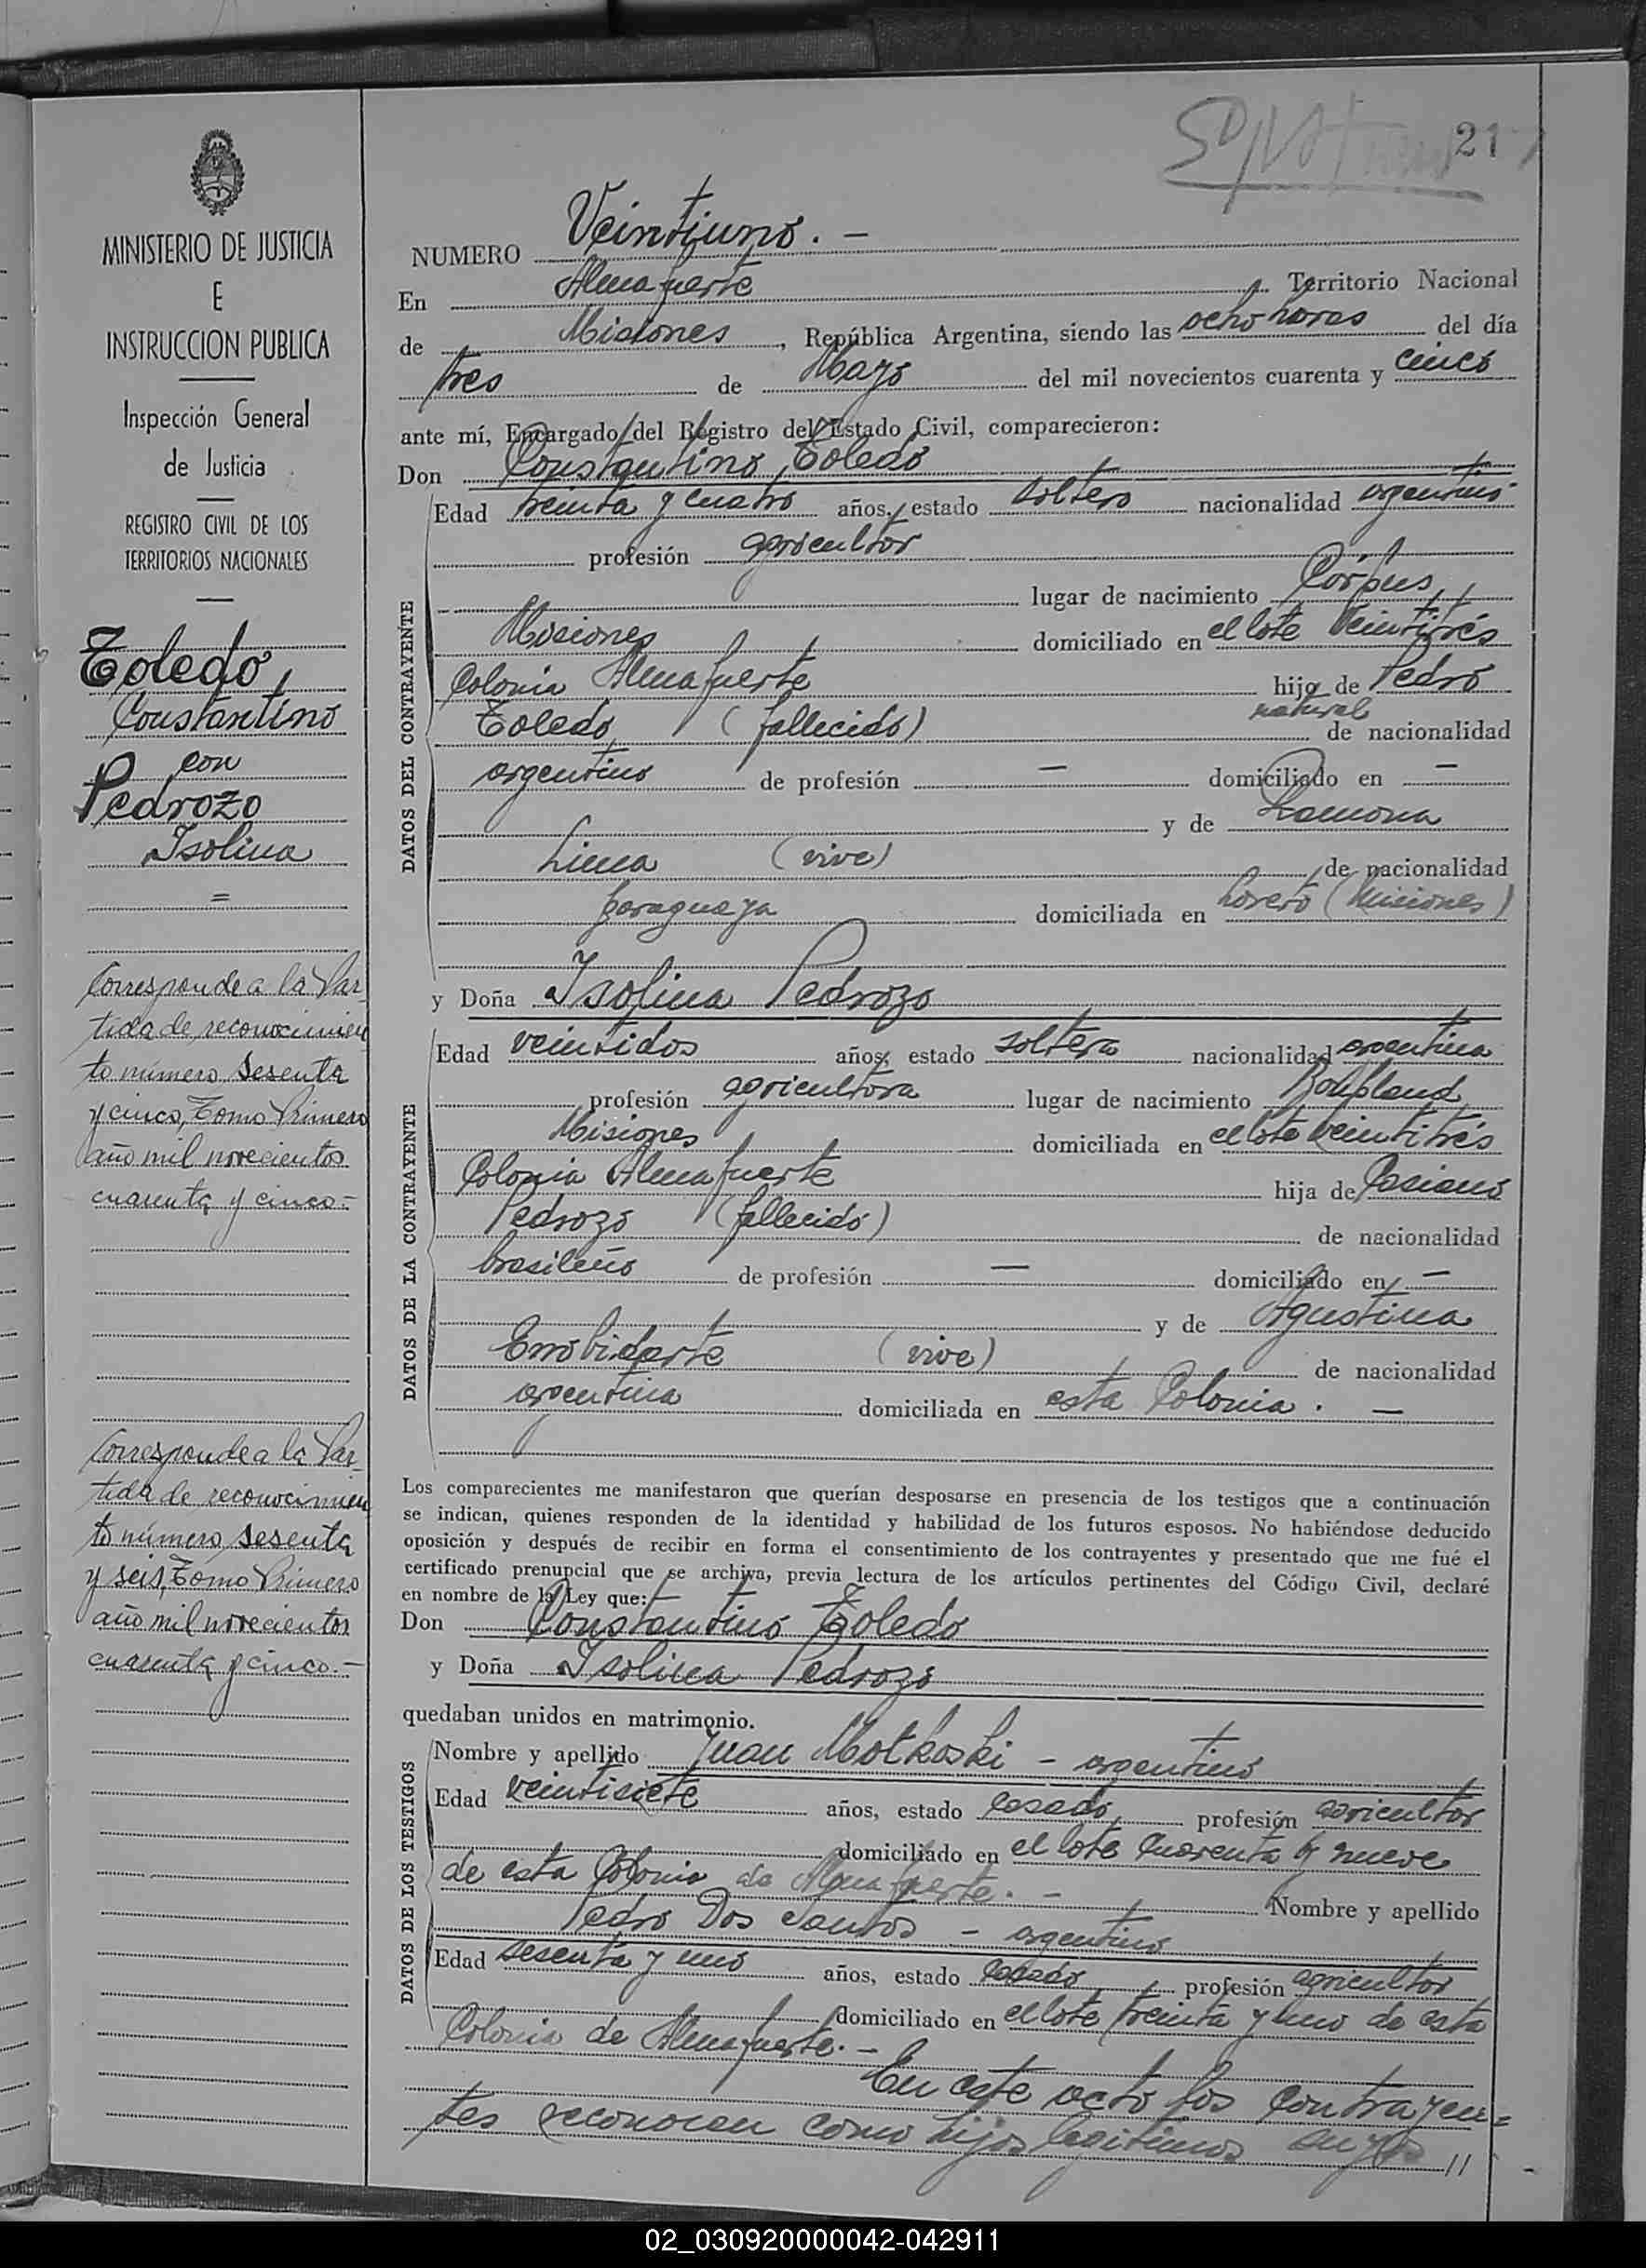 21
MINISTERIO DE JUSTICIA
E
INSTRUCCION PUBLICA
Inspección General
de Justicia
REGISTRO CIVIL DE LOS
TERRITORIOS NACIONALES
Toledo,
Constantino
con
Pedrozo
Isolina
=
Corresponde a la Par-
tida de reconocimien
to número sesenta
y cinco, Tomo Primero
año mil novecientos
cuarenta y cinco.-
Corresponde a la Par-
tida de reconocimien
to número sesenta
y seis, Tomo Primero
año mil novecientos
cuarenta y cinco.-
NUMERO Veintiuno. -
En Almafuerte Territorio Nacional
de Misiones, República Argentina, siendo las ocho horas del día
tres de Mayo del mil novecientos cuarenta y cinco
ante mí, Encargado del Registro del Estado Civil, comparecieron:
Don Constantino Toledo
DATOS DEL CONTRAYENTE
Edad treinta y cuatro años, estado soltero nacionalidad argentino
profesión agricultor
lugar de nacimiento Córpus,
Misiones domiciliado en el lote veintitrés
Colonia Almafuerte hijo de Pedro
natural
Toledo (fallecido) de nacionalidad
argentino de profesión — domiciliado en —
y de Ramona
Lima (vive) de nacionalidad
paraguaya domiciliada en Loreto (Misiones)
y Doña Isolina Pedrozo
DATOS DE LA CONTRAYENTE
Edad veintidos años, estado soltera nacionalidad argentina
profesión agricultora lugar de nacimiento Bonpland
Misiones domiciliada en el lote veintitrés
Colonia Almafuerte hija de Casiano
Pedrozo (fallecido) de nacionalidad
brasileño de profesión — domiciliado en —
y de Agustina
Errobidarte (vive) de nacionalidad
argentina domiciliada en esta Colonia. —
Los comparecientes me manifestaron que querían desposarse en presencia de los testigos que a continuación
se indican, quienes responden de la identidad y habilidad de los futuros esposos. No habiéndose deducido
oposición y después de recibir en forma el consentimiento de los contrayentes y presentado que me fué el
certificado prenupcial que se archiva, previa lectura de los artículos pertinentes del Código Civil, declaré
en nombre de la Ley que:
Don Constantino Toledo
y Doña Isolina Pedrozo
quedaban unidos en matrimonio.
DATOS DE LOS TESTIGOS
Nombre y apellido Juan Motkoski - argentino
Edad veintisiete años, estado casado, profesión agricultor
domiciliado en el lote cuarenta y nueve
de esta Colonia de Almafuerte. - Nombre y apellido
Pedro Dos Santos - argentino
Edad sesenta y uno años, estado casado profesión agricultor
domiciliado en el lote treinta y uno de esta
Colonia de Almafuerte. -
En este acto los contrayen=
tes reconocen como hijos legitimos suyos //
02_030920000042-042911